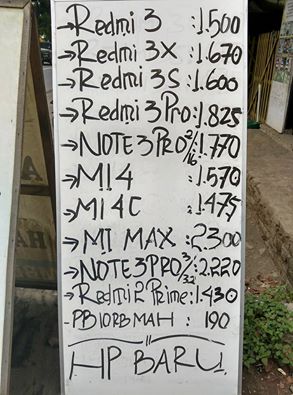 →Redmi 3 :1.500
→Redmi 3X :1.670
→Redmi 3S :1.600
→Redmi 3Pro:1.825
→NOTE3PRO 2/16 1.770
→MI4 :1.570
→MI4C :1.475
→MI MAX :2.300
→NOTE3PRO 3/32:2.220
→Redmi 2 Prime:1.430
-PB10RBMAH : 190
HP BARU